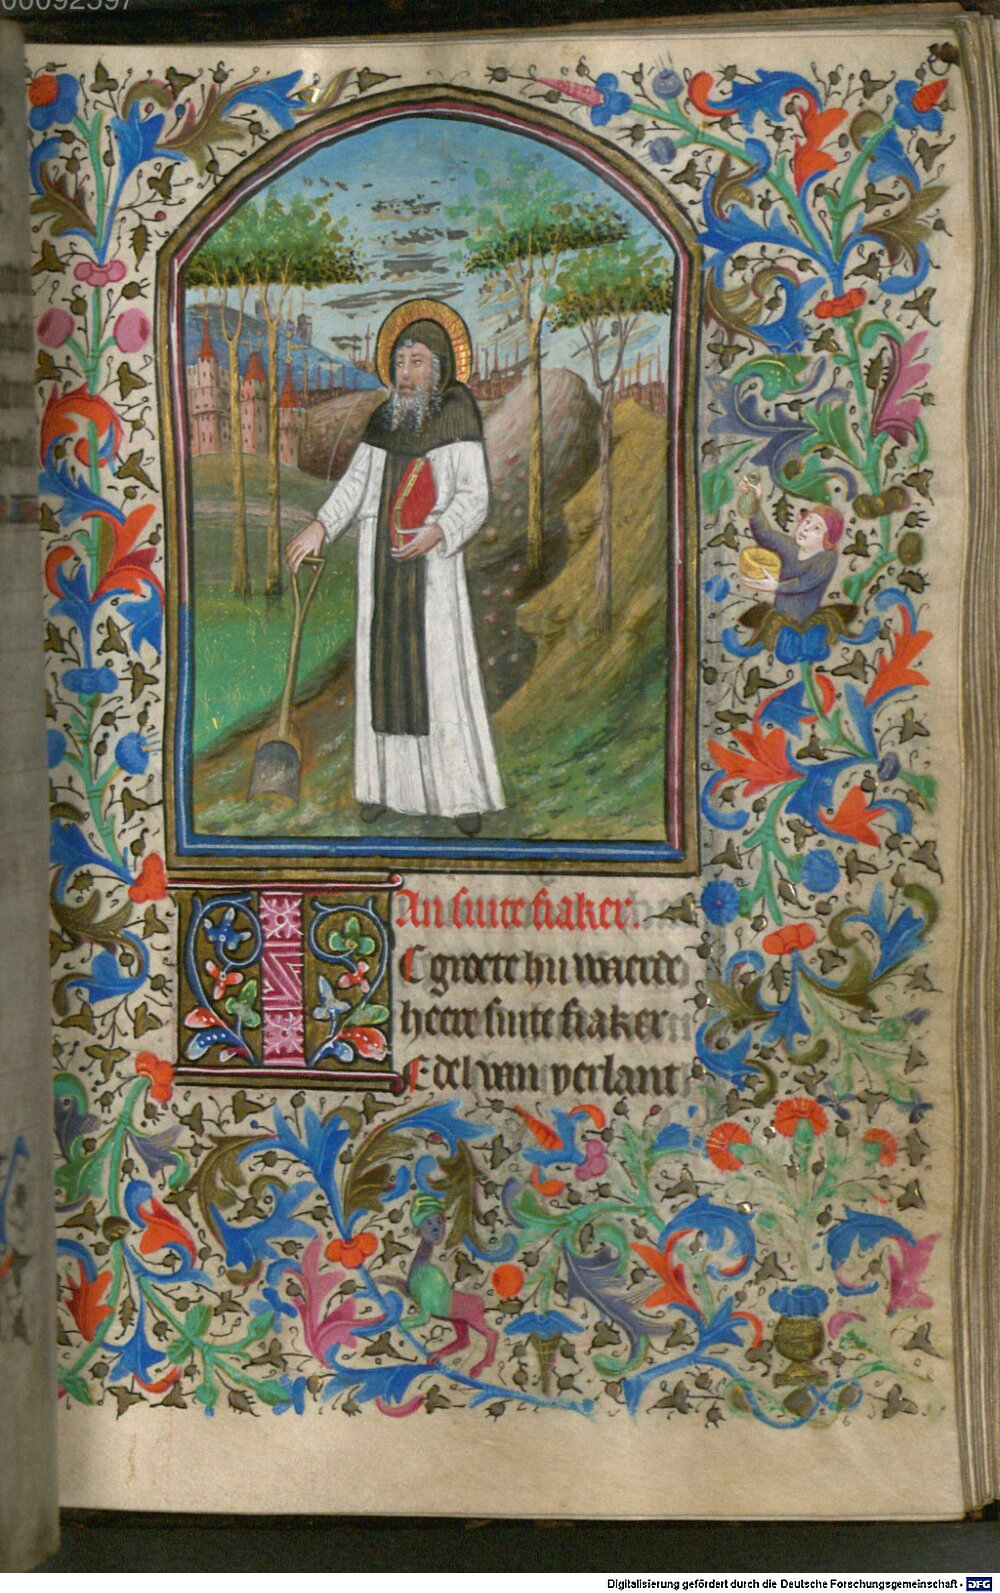 00092597
Uan sinte fiaker.
IC groete hu waerde
heere sinte fiaker
Edel van yerlant
Digitalisierung gefördert durch die Deutsche Forschungsgemeinschaft - DFG